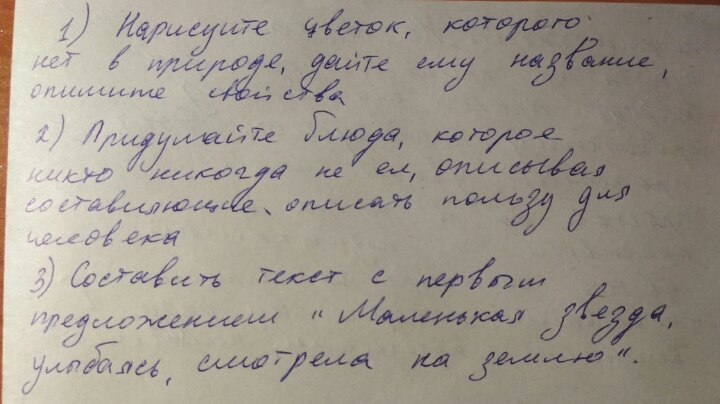 1) Нарисуйте цветок, которого
нет в природе, дайте ему название,
опишите свойства
2) Придумайте блюда, которое
никто никогда не ел, описывая
составляющие, описать пользу для
человека
3) Составить текст с первым
предложением "Маленькая звезда,
улыбаясь, смотрела на землю".